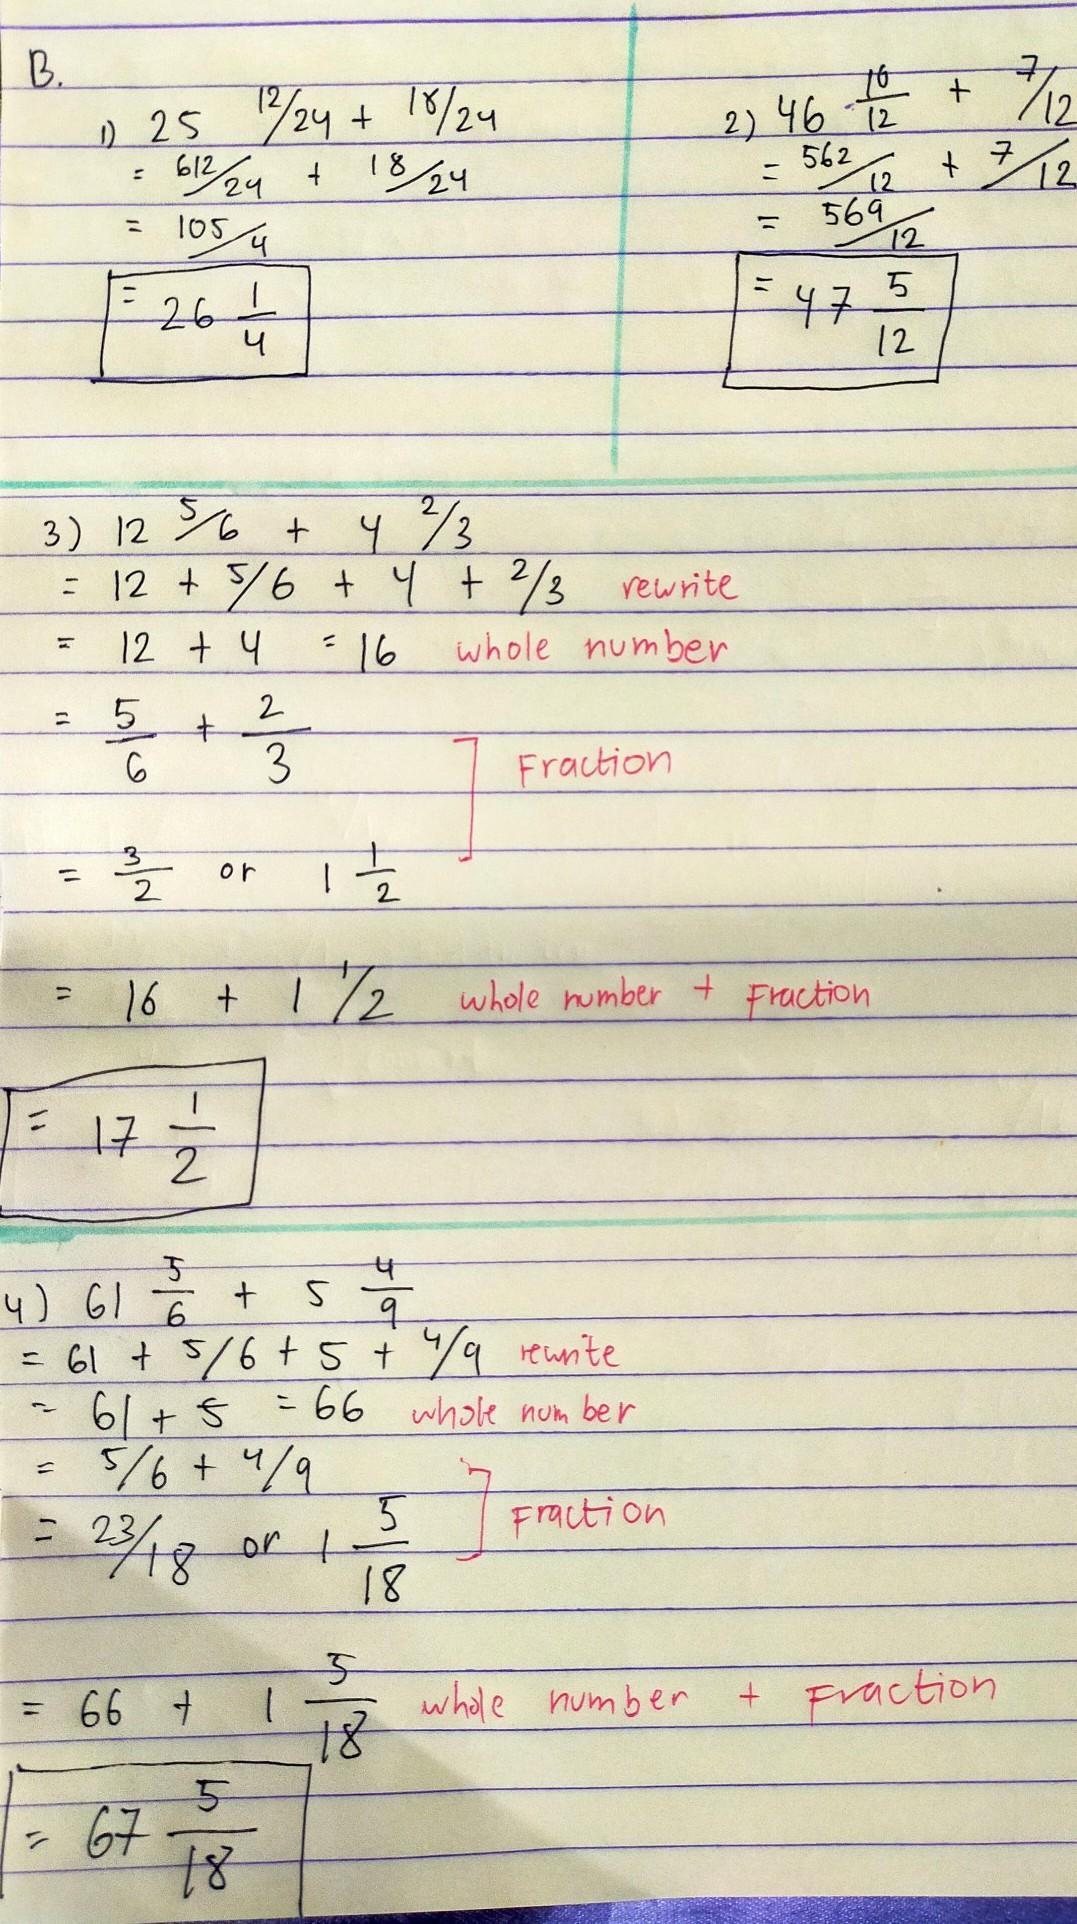 B.
1) 25 12/24 + 18/24
= 612/24 + 18/24
= 105/4
= 26 1/4
2) 46 10/12 + 7/12
= 562/12 + 7/12
= 569/12
= 47 5/12
3) 12 5/6 + 4 2/3
= 12 + 5/6 + 4 + 2/3 rewrite
= 12 + 4 = 16 whole number
= 5/6 + 2/3
Fraction
= 3/2 or 1 1/2
= 16 + 1 1/2 whole number + Fraction
= 17 1/2
4) 61 5/6 + 5 4/9
= 61 + 5/6 + 5 + 4/9 rewrite
= 61 + 5 = 66 whole number
= 5/6 + 4/9
Fraction
= 23/18 or 1 5/18
= 66 + 1 5/18 whole number + Fraction
= 67 5/18